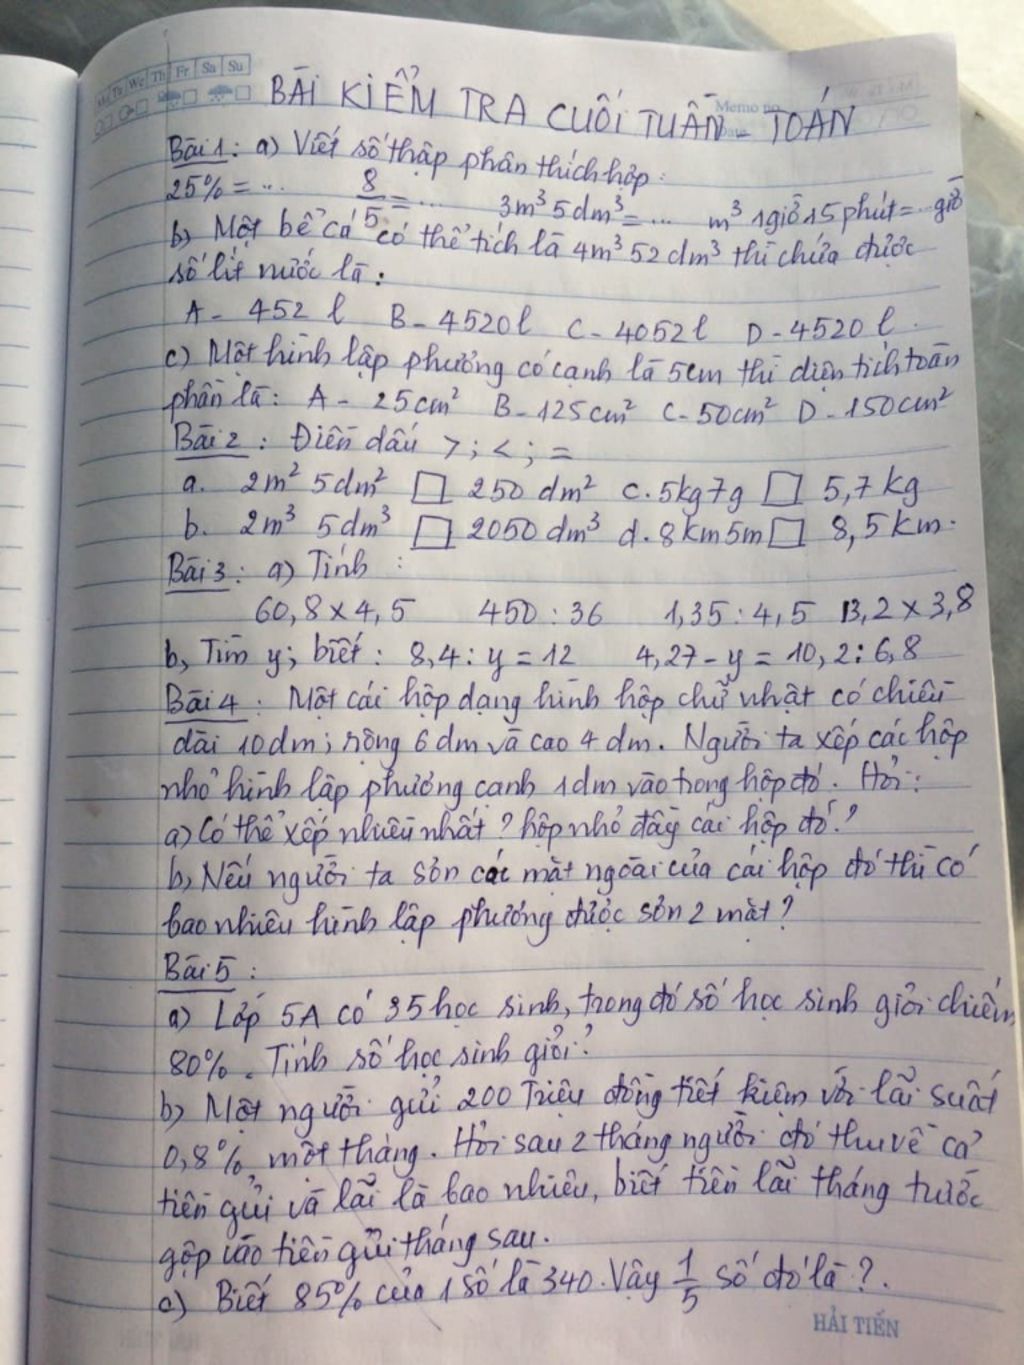 Mo Tu We Th Fr Sa Su
Memo no.
BÀI KIỂM TRA CUỐI TUẦN - TOÁN
Bài 1: a) Viết số thập phân thích hợp:
25% = ... 8/5 = ... 3m³ 5dm³ = ... m³ 1giờ 15 phút = ... giờ
b) Một bể cá có thể tích là 4m³ 52 dm³ thì chứa được
số lít nước là:
A - 452 l B - 4520 l C - 4052 l D - 4520 l.
c) Một hình lập phương có cạnh là 5cm thì diện tích toàn
phần là: A - 25cm² B - 125cm² C - 50cm² D - 150cm²
Bài 2: Điền dấu > ; < ; =
a. 2m² 5dm² □ 250 dm² c. 5kg7g □ 5,7 kg
b. 2m³ 5dm³ □ 2050 dm³ d. 8km5m □ 8,5 km.
Bài 3: a) Tính:
60,8 x 4,5 450 : 36 1,35 : 4,5 13,2 x 3,8
b, Tìm y; biết: 8,4 : y = 12 4,27 - y = 10,2 : 6,8
Bài 4. Một cái hộp dạng hình hộp chữ nhật có chiều
dài 10dm; rộng 6dm và cao 4 dm. Người ta xếp các hộp
nhỏ hình lập phương cạnh 1dm vào trong hộp đó. Hỏi:
a) Có thể xếp nhiều nhất ? hộp nhỏ đầy cái hộp đó?
b, Nếu người ta sơn các mặt ngoài của cái hộp đó thì có
bao nhiêu hình lập phương được sơn 2 mặt?
Bài 5:
a) Lớp 5A có 35 học sinh, trong đó số học sinh giỏi chiếm
80%. Tính số học sinh giỏi?
b) Một người gửi 200 Triệu đồng tiết kiệm với lãi suất
0,8% một tháng. Hỏi sau 2 tháng người đó thu về cả
tiền gửi và lãi là bao nhiêu, biết tiền lãi tháng trước
gộp vào tiền gửi tháng sau.
c) Biết 85% của 1 số là 340. Vậy 1/5 số đó là ?.
HẢI TIẾN